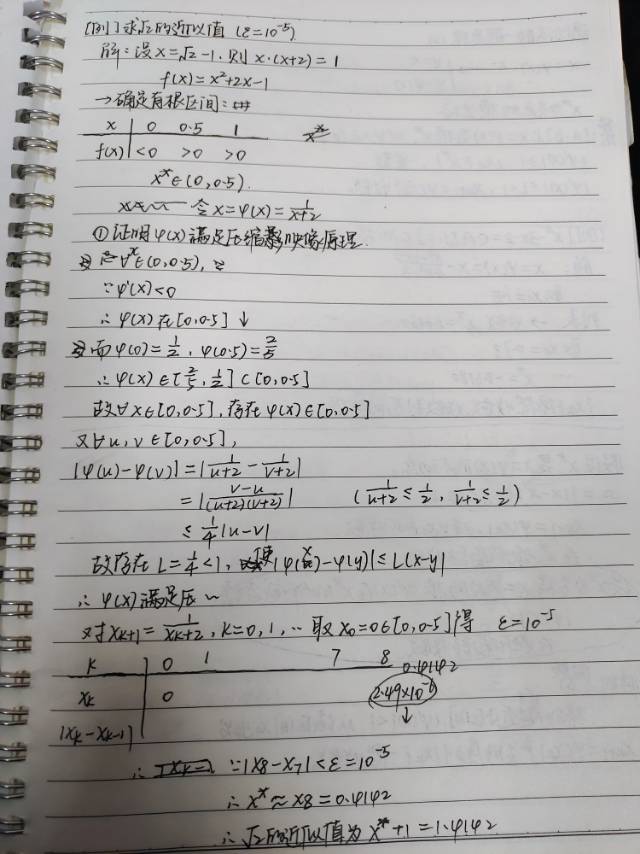 [例]求√2的近似值 (ε=10⁻⁵)
解:设x=√2-1.则x·(x+2)=1
f(x)=x²+2x-1
→确定有根区间:
x 0 0.5 1 x*
f(x) <0 >0 >0
x*∈(0,0.5).
令x=φ(x)=1/(x+2)
①证明φ(x)满足压缩映像原理.
∀x∈(0,0.5),
∵φ'(x)<0
∴φ(x)在[0,0.5]↓
而φ(0)=1/2, φ(0.5)=2/5
∴φ(x)∈[2/5,1/2]⊂[0,0.5]
故∀x∈[0,0.5],存在φ(x)∈[0,0.5]
又∀u,v∈[0,0.5],
|φ(u)-φ(v)|=|1/(u+2)-1/(v+2)|
=|(v-u)/((u+2)(v+2))| (1/(u+2)≤1/2, 1/(v+2)≤1/2)
≤1/4|u-v|
故存在L=1/4<1,使|φ(x)-φ(y)|≤L|x-y|
∴φ(x)满足压~
对x_{k+1}=1/(x_k+2), k=0,1,… 取x₀=0∈[0,0.5]得 ε=10⁻⁵
k 0 1 7 8 0.4142
x_k 0 2.49×10⁻⁶
|x_k-x_{k-1}| ↓
∴ ∵|x₈-x₇|<ε=10⁻⁵
∴x*≈x₈=0.4142
∴√2的近似值为x*+1=1.4142